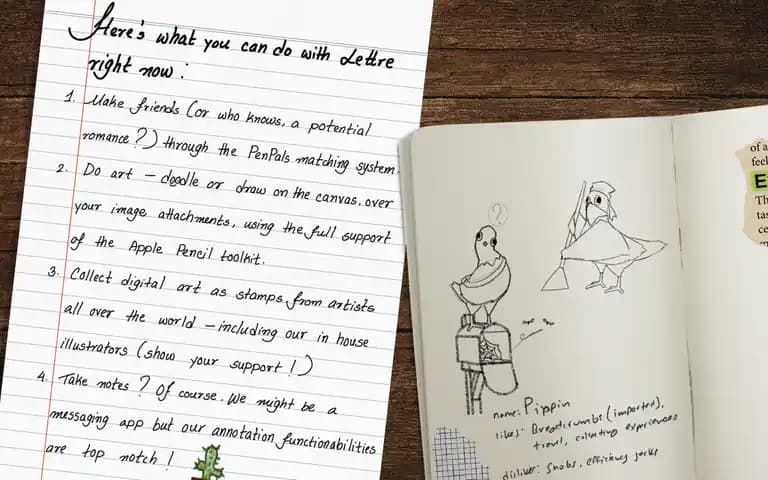 Here's what you can do with Lettre
right now:
1. Make friends (or who knows, a potential
romance?) through the PenPals matching system.
2. Do art – doodle or draw on the canvas, over
your image attachments, using the full support
of the Apple Pencil toolkit.
3. Collect digital art as stamps from artists
all over the world – including our in house
illustrators (show your support!)
4. Take notes? Of course. We might be a
messaging app but our annotation functionabilities
are top notch!
?
name: Pippin
likes: Breadcrumbs (imported),
travel, collecting experiences
dislike: Snobs, efficiency jerks
of a
feel
E
Th
tas
ce